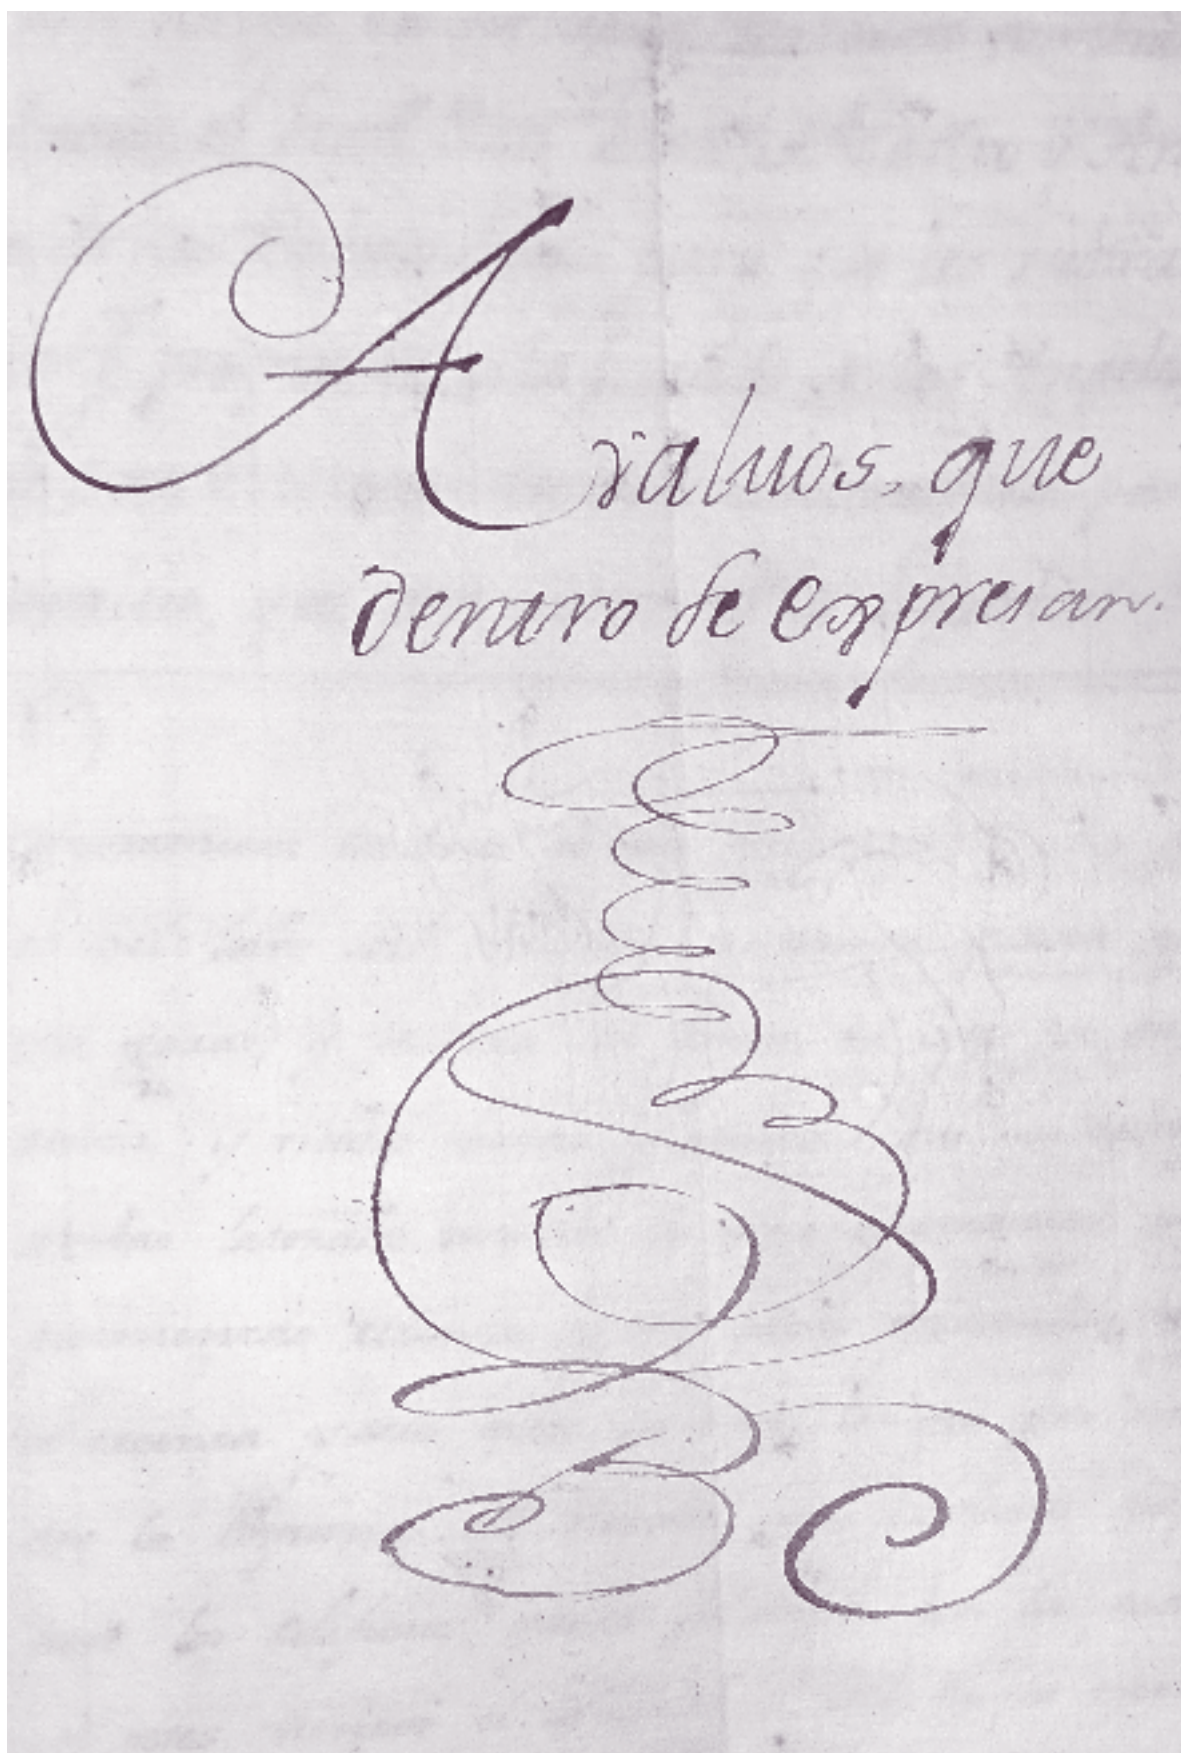 Avaluos, que
dentro se expresan.